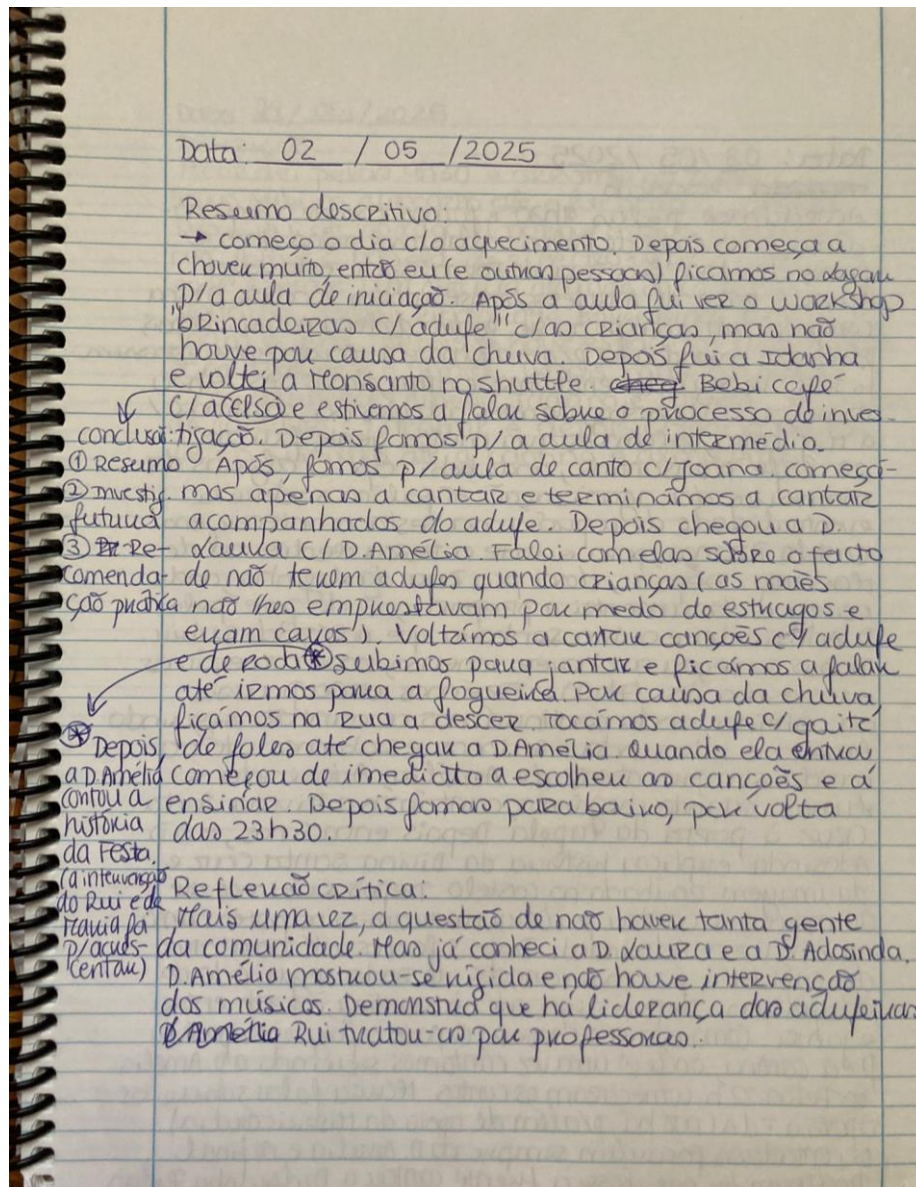 Data: 02 / 05 / 2025
Resumo descritivo:
→ começo o dia c/o aquecimento. Depois começa a
chover muito, então eu (e outras pessoas) ficamos no lagar
p/a aula de iniciação. Após a aula fui ver o workshop
"brincadeiras c/ adufe" c/as crianças, mas não
houve por causa da chuva. Depois fui a Idanha
e voltei a Monsanto no shuttle. Bebi café
c/a Celso e estivemos a falar sobre o processo de inves-
tigação. Depois fomos p/ a aula de intermédio.
Após, fomos p/ aula de canto c/Joana começá-
mos apenas a cantar e terminámos a cantar
acompanhados do adufe. Depois chegou a D.
Laura c/ D. Amélia. Falei com elas sobre o facto
de não terem adufes quando crianças (as mães
não lhes emprestavam por medo de estragos e
eram caros). Voltámos a cantar canções c/ adufe
e de roda * Subimos para jantar e ficámos a falar
até irmos para a fogueira. Por causa da chuva,
ficámos na rua a descer. Tocámos adufe c/ gaita
de foles até chegar a D. Amélia. Quando ela entrou
começou de imediato a escolher as canções e a
ensinar. Depois fomos para baixo, por volta
das 23h30.
conclusã:
① Resumo
② Investig.
futura
③ Re-
comenda-
ção prática
* Depois,
a D. Amélia
contou a
história
da Festa.
(a intervenção
do Rui e de
Flávia foi
p/ acres-
centar)
Reflexão crítica:
Mais uma vez, a questão de não haver tanta gente
da comunidade. Mas já conheci a D. Laura e a D. Adosinda.
D. Amélia mostrou-se rígida e não houve intervenção
dos músicos. Demonstra que há liderança das adufeiras
Amélia Rui tratou-as por professoras.